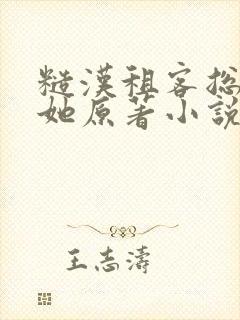 糙漢租客總
她原著小說
王志濤